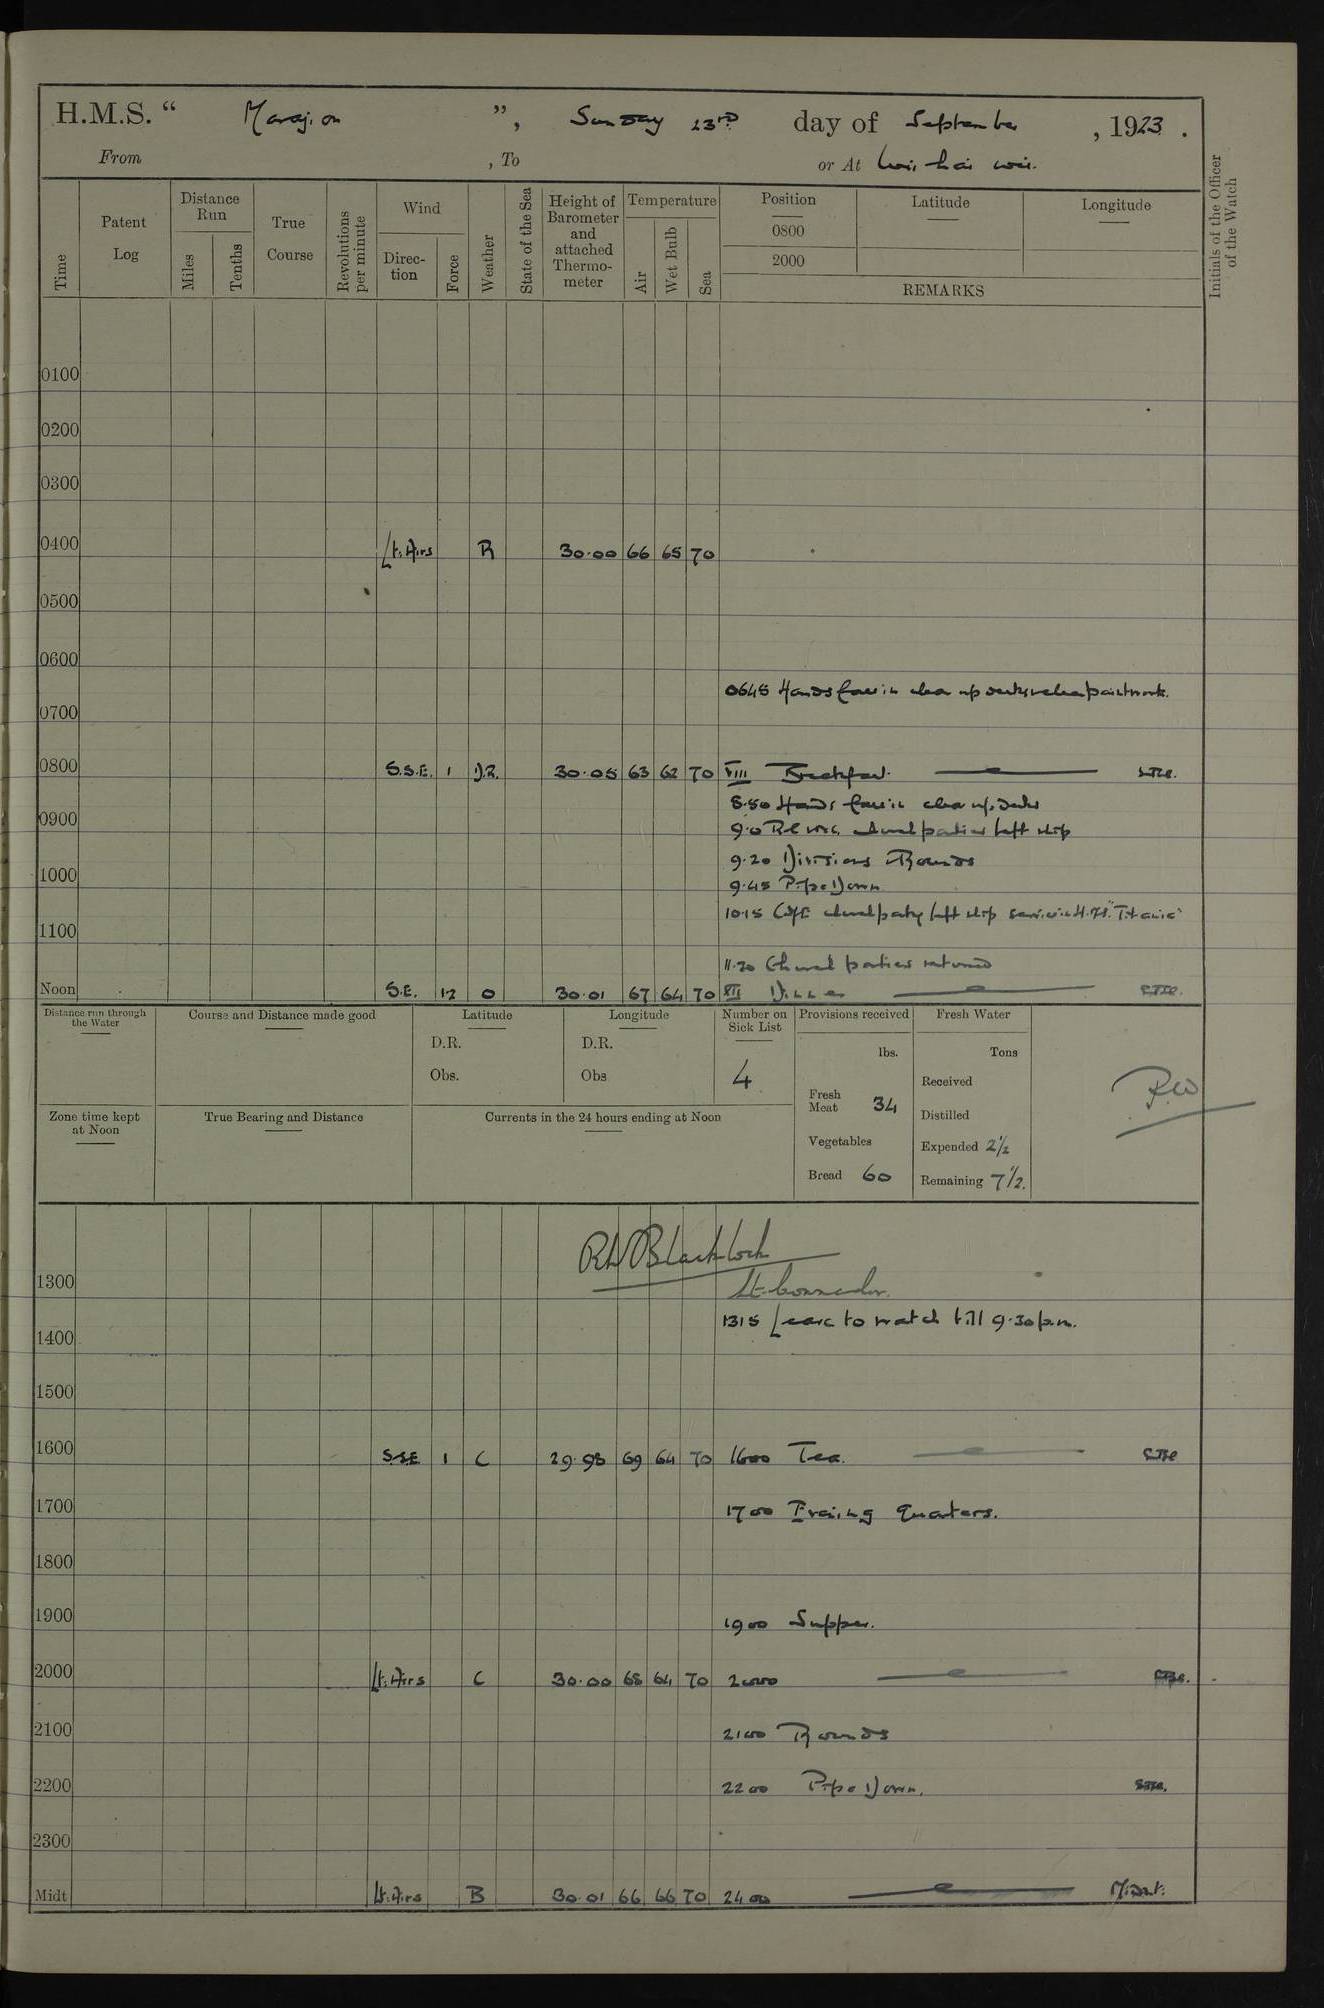 H.M.S. "Marazion", Sunday 23rd day of September, 1923.
From , To or At Wei-hai-wei.
Time
Patent Log
Distance Run
Miles
Tenths
True Course
Revolutions per minute
Wind
Direc-tion
Force
Weather
State of the Sea
Height of Barometer and attached Thermo-meter
Temperature
Air
Wet Bulb
Sea
Position
0800
2000
Latitude
Longitude
REMARKS
Initials of the Officer of the Watch
0100
0200
0300
0400 Lt. Airs R 30.00 66 65 70
0500
0600
0645 Hands fall in clean up decks & clean paintwork.
0700
0800 S.S.E. 1 D.R. 30.05 63 62 70 VIII Breakfast.
8.50 Hands fall in clean up decks
0900
9.0 church parties left ship
9.20 Divisions Rounds
9.45 Pipe Down
1000
10.15 C of E church party left ship service H.M.S. "Titania"
1100
11.20 Church parties returned
Noon S.E. 12 O 30.01 67 64 70 XII Dinner
Distance run through the Water
Course and Distance made good
Latitude
D.R.
Obs.
Longitude
D.R.
Obs
Number on Sick List
4
Provisions received
lbs.
Fresh Meat 34
Vegetables
Bread 60
Fresh Water
Tons
Received
Distilled
Expended 2½
Remaining 7½.
Zone time kept at Noon
True Bearing and Distance
Currents in the 24 hours ending at Noon
Blacklock
Lt. Commander.
1300
1315 Leave to watch till 9.30 p.m.
1400
1500
1600 S.S.E 1 C 29.98 69 64 70 1600 Tea.
1700
1700 Evening Quarters.
1800
1900
1900 Supper.
2000 Lt. Airs C 30.00 68 64 70 2000
2100
2100 Rounds
2200
2200 Pipe Down.
2300
Midt Lt. Airs B 30.01 66 66 70 2400 Midnt.